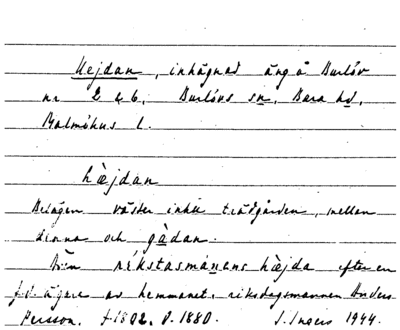 Hejdan, inhägnad äng å Burlöv
nr 2 & 6. Burlövs sn, Bara hd,
Malmöhus l.
hæjdan
Belägen väster intill trädgården, mellan
denna och gàdan.
Även rékstasmánens hæjda efter en
f.d. ägare av hemmanet, riksdagsmannen Anders
Persson, f. 1802, d. 1880. I. Ingers 1944.